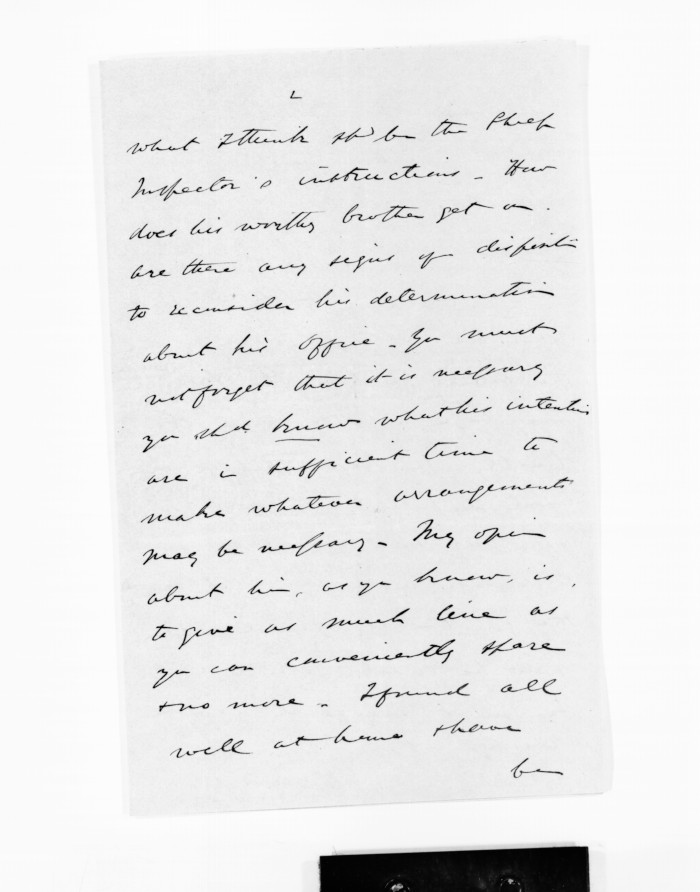 2
what I think shd be the Chief
Inspector's instructions - How
does his worthy brother get on.
are there any signs of dispositn
to reconsider his determination
about his office - You must
not forget that it is necessary
you shd. know what his intentions
are in sufficient time to
make whatever arrangements
may be necessary - My opinion
about him, as you know, is,
to give as much line as
you can conveniently spare
& no more - I found all
well at home & have
been